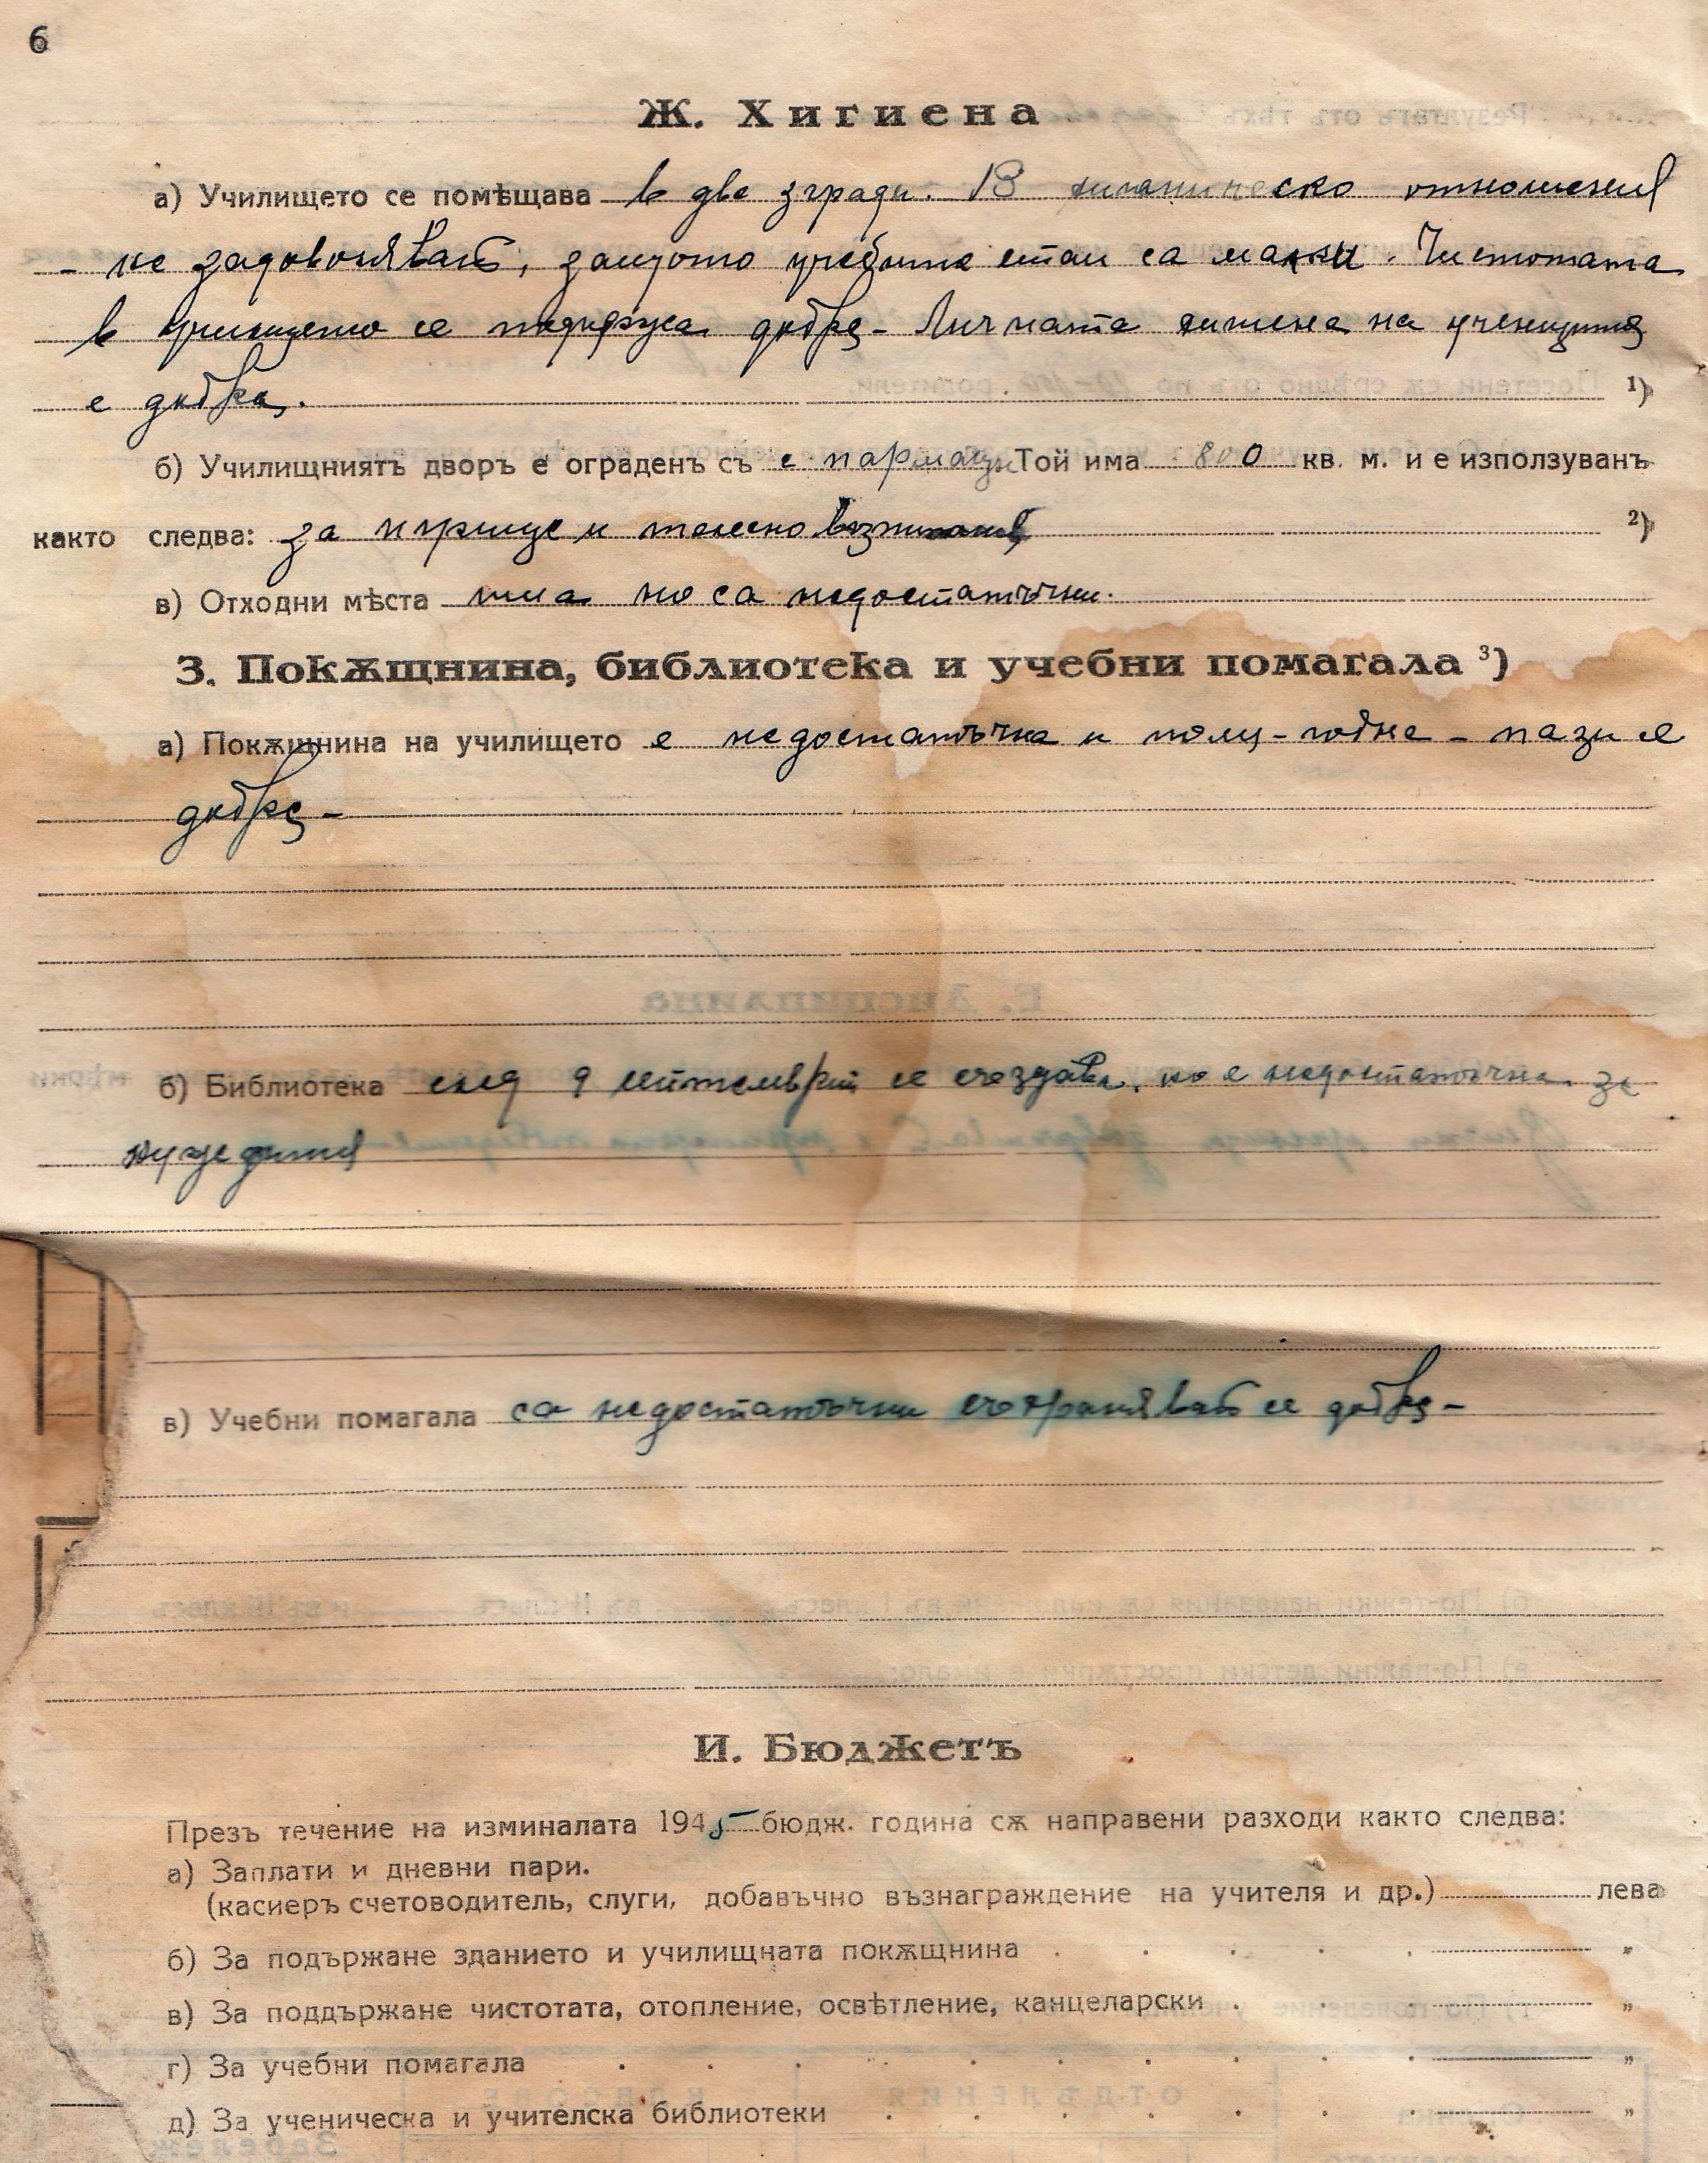 6
Ж. Хигиена
а) Училището се помѣщава в две згради. В хигиеническо отношения
- не задоволяват, защото учебните стаи са малки. Чистотата
в училището се поддържа добре - Личната хигиена на учениците
е добра. 1)
б) Училищниятъ дворъ е ограденъ съ с пармаци Той има 800 кв. м. и е използуванъ
както следва: за игрище и телесно възпитание 2)
в) Отходни мѣста има но са недостатъчни.
З. Покѫщнина, библиотека и учебни помагала 3)
а) Покѫщнина на училището е недостатъчна и полу-годна - пази се
добре -
б) Библиотека след 9 септемврий се създава, но е недостатъчна за
нуждите
в) Учебни помагала са недостатъчни съхраняват се добре -
И. Бюджетъ
Презъ течение на изминалата 1945 бюдж. година сѫ направени разходи както следва:
а) Заплати и дневни пари.
(касиеръ счетоводитель, слуги, добавъчно възнаграждение на учителя и др.) лева
б) За подържане зданието и училищната покѫщнина . . . . . "
в) За поддържане чистотата, отопление, освѣтление, канцеларски . . . "
г) За учебни помагала . . . . . . . . . . "
д) За ученическа и учителска библиотеки . . . . . . . "